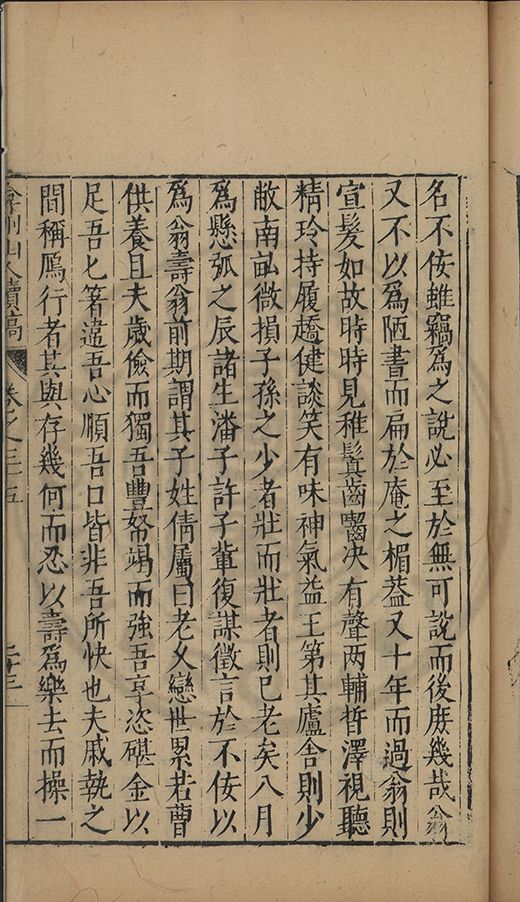 名不佞雖竊爲之說必至於無可說而後庻幾哉翁
又不以爲陋書而扁於庵之楣葢又十年而過翁則
宣髮如故時時見稚鬒齒齧决有聲两輔晳澤視聽
精玲持履趫健談笑有味神氣益王第其廬舍則少
敝南畝微損子孫之少者壯而壯者則巳老矣八月
爲懸弧之辰諸生潘子許子軰復謀徵言於不佞以
爲翁壽翁前期謂其子姓倩屬曰老父戀世累若曹
供養且夫歲儉而獨吾豐帑竭而強吾享恣碪金以
足吾匕箸違吾心順吾口皆非吾所快也夫戚執之
間稱鴈行者其與存幾何而忍以壽爲樂去而操一
弇州山人續稿 卷之三十五 二十三